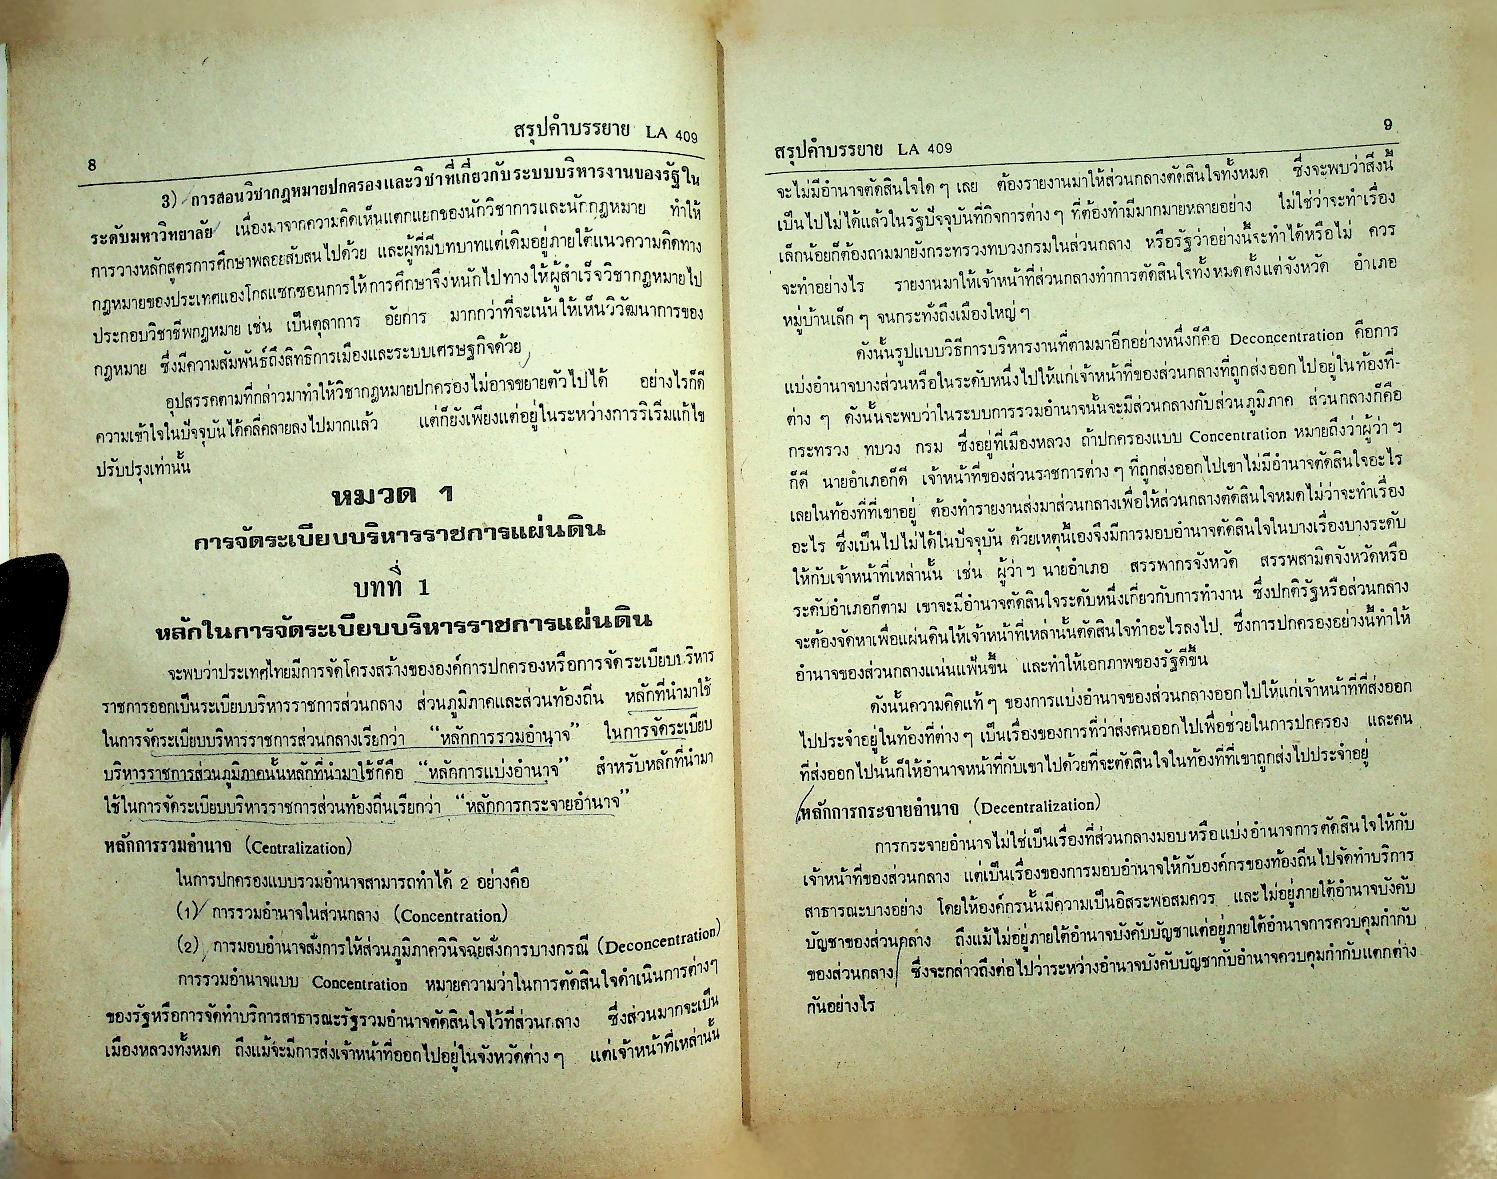 8
สรุปคำบรรยาย LA 409
3) การสอนวิชากฎหมายปกครองและวิชาที่เกี่ยวกับระบบบริหารงานของรัฐใน
ระดับมหาวิทยาลัย เนื่องมาจากความคิดเห็นแตกแยกของนักวิชาการและนักกฎหมาย ทำให้
การวางหลักสูตรการศึกษาพลอยสับสนไปด้วย และผู้ที่มีบทบาทแต่เดิมอยู่ภายใต้แนวความคิดทาง
กฎหมายของประเทศแองโกลแซกซอนการให้การศึกษาจึงหนักไปทางให้ผู้สำเร็จวิชากฎหมายไป
ประกอบวิชาชีพกฎหมาย เช่น เป็นตุลาการ อัยการ มากกว่าที่จะเน้นให้เห็นวิวัฒนาการของ
กฎหมาย ซึ่งมีความสัมพันธ์ถึงสิทธิการเมืองและระบบเศรษฐกิจด้วย
อุปสรรคตามที่กล่าวมาทำให้วิชากฎหมายปกครองไม่อาจขยายตัวไปได้ อย่างไรก็ดี
ความเข้าใจในปัจจุบันได้คลี่คลายลงไปมากแล้ว แต่ก็ยังเพียงแต่อยู่ในระหว่างการริเริ่มแก้ไข
ปรับปรุงเท่านั้น
หมวด 1
การจัดระเบียบบริหารราชการแผ่นดิน
บทที่ 1
หลักในการจัดระเบียบบริหารราชการแผ่นดิน
จะพบว่าประเทศไทยมีการจัดโครงสร้างขององค์การปกครองหรือการจัดระเบียบบริหาร
ราชการออกเป็นระเบียบบริหารราชการส่วนกลาง ส่วนภูมิภาคและส่วนท้องถิ่น หลักที่นำมาใช้
ในการจัดระเบียบบริหารราชการส่วนกลางเรียกว่า “หลักการรวมอำนาจ” ในการจัดระเบียบ
บริหารราชการส่วนภูมิภาคนั้นหลักที่นำมาใช้ก็คือ “หลักการแบ่งอำนาจ” สำหรับหลักที่นำมา
ใช้ในการจัดระเบียบบริหารราชการส่วนท้องถิ่นเรียกว่า “หลักการกระจายอำนาจ”
หลักการรวมอำนาจ (Centralization)
ในการปกครองแบบรวมอำนาจสามารถทำได้ 2 อย่างคือ
(1) การรวมอำนาจในส่วนกลาง (Concentration)
(2) การมอบอำนาจสั่งการให้ส่วนภูมิภาควินิจฉัยสั่งการบางกรณี (Deconcentration)
การรวมอำนาจแบบ Concentration หมายความว่าในการตัดสินใจดำเนินการต่างๆ
ของรัฐหรือการจัดทำบริการสาธารณะรัฐรวมอำนาจตัดสินใจไว้ที่ส่วนกลาง ซึ่งส่วนมากจะเป็น
เมืองหลวงทั้งหมด ถึงแม้จะมีการส่งเจ้าหน้าที่ออกไปอยู่ในจังหวัดต่าง ๆ แต่เจ้าหน้าที่เหล่านั้น
สรุปคำบรรยาย LA 409
9
จะไม่มีอำนาจตัดสินใจใด ๆ เลย ต้องรายงานมาให้ส่วนกลางตัดสินใจทั้งหมด ซึ่งจะพบว่าสิ่งนี้
เป็นไปไม่ได้แล้วในรัฐปัจจุบันที่กิจการต่าง ๆ ที่ต้องทำมีมากมายหลายอย่าง ไม่ใช่ว่าจะทำเรื่อง
เล็กน้อยก็ต้องถามมายังกระทรวงทบวงกรมในส่วนกลาง หรือรัฐว่าอย่างนี้จะทำได้หรือไม่ ควร
จะทำอย่างไร รายงานมาให้เจ้าหน้าที่ส่วนกลางทำการตัดสินใจทั้งหมดตั้งแต่จังหวัด อำเภอ
หมู่บ้านเล็ก ๆ จนกระทั่งถึงเมืองใหญ่ ๆ
ดังนั้นรูปแบบวิธีการบริหารงานที่ตามมาอีกอย่างหนึ่งก็คือ Deconcentration คือการ
แบ่งอำนาจบางส่วนหรือในระดับหนึ่งไปให้แก่เจ้าหน้าที่ของส่วนกลางที่ถูกส่งออกไปอยู่ในท้องที่-
ต่าง ๆ ดังนั้นจะพบว่าในระบบการรวมอำนาจนั้นจะมีส่วนกลางกับส่วนภูมิภาค ส่วนกลางก็คือ
กระทรวง ทบวง กรม ซึ่งอยู่ที่เมืองหลวง ถ้าปกครองแบบ Concentration หมายถึงว่าผู้ว่า ฯ
ก็ดี นายอำเภอก็ดี เจ้าหน้าที่ของส่วนราชการต่าง ๆ ที่ถูกส่งออกไปเขาไม่มีอำนาจตัดสินใจอะไร
เลยในท้องที่ที่เขาอยู่ ต้องทำรายงานส่งมาส่วนกลางเพื่อให้ส่วนกลางตัดสินใจหมดไม่ว่าจะทำเรื่อง
อะไร ซึ่งเป็นไปไม่ได้ในปัจจุบัน ด้วยเหตุนี้เองจึงมีการมอบอำนาจตัดสินใจในบางเรื่องบางระดับ
ให้กับเจ้าหน้าที่เหล่านั้น เช่น ผู้ว่า ฯ นายอำเภอ สรรพากรจังหวัด สรรพสามิตจังหวัดหรือ
ระดับอำเภอก็ตาม เขาจะมีอำนาจตัดสินใจระดับหนึ่งเกี่ยวกับการทำงาน ซึ่งปกติรัฐหรือส่วนกลาง
จะต้องจัดหาเพื่อแผ่นดินให้เจ้าหน้าที่เหล่านั้นตัดสินใจทำอะไรลงไป ซึ่งการปกครองอย่างนี้ทำให้
อำนาจของส่วนกลางแน่นแฟ้นขึ้น และทำให้เอกภาพของรัฐดีขึ้น
ดังนั้นความคิดแท้ ๆ ของการแบ่งอำนาจของส่วนกลางออกไปให้แก่เจ้าหน้าที่ที่ส่งออก
ไปประจำอยู่ในท้องที่ต่าง ๆ เป็นเรื่องของการที่ว่าส่งคนออกไปเพื่อช่วยในการปกครอง และคน
ที่ส่งออกไปนั้นก็ให้อำนาจหน้าที่กับเขาไปด้วยที่จะตัดสินใจในท้องที่ที่เขาถูกส่งไปประจำอยู่
หลักการกระจายอำนาจ (Decentralization)
การกระจายอำนาจไม่ใช่เป็นเรื่องที่ส่วนกลางมอบหรือแบ่งอำนาจการตัดสินใจให้กับ
เจ้าหน้าที่ของส่วนกลาง แต่เป็นเรื่องของการมอบอำนาจให้กับองค์กรของท้องถิ่นไปจัดทำบริการ
สาธารณะบางอย่าง โดยให้องค์กรนั้นมีความเป็นอิสระพอสมควร และไม่อยู่ภายใต้อำนาจบังคับ
บัญชาของส่วนกลาง ถึงแม้ไม่อยู่ภายใต้อำนาจบังคับบัญชาแต่อยู่ภายใต้อำนาจการควบคุมกำกับ
ของส่วนกลาง ซึ่งจะกล่าวถึงต่อไปว่าระหว่างอำนาจบังคับบัญชากับอำนาจควบคุมกำกับแตกต่าง
กันอย่างไร